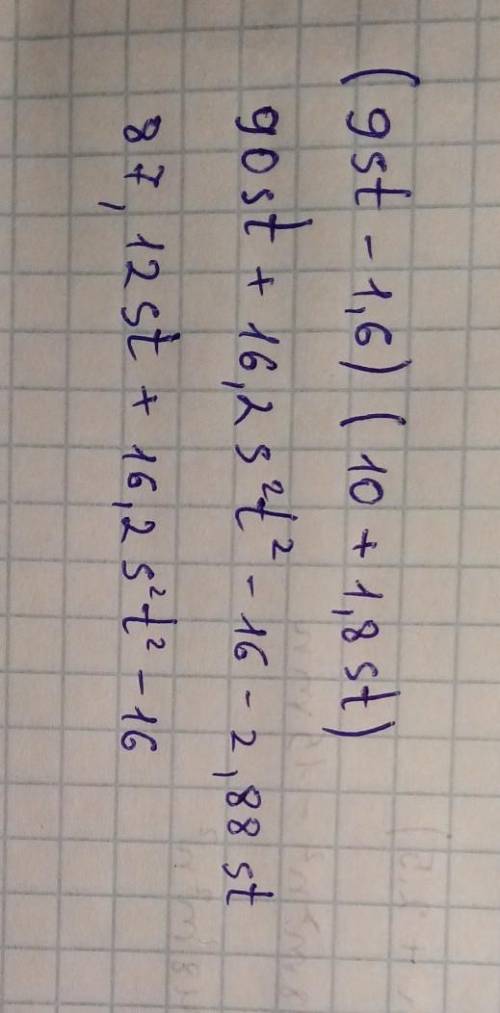 (9st - 1,6) (10 + 1,8st)
90st + 16,2s²t² - 16 - 2,88st
87,12st + 16,2s²t² - 16